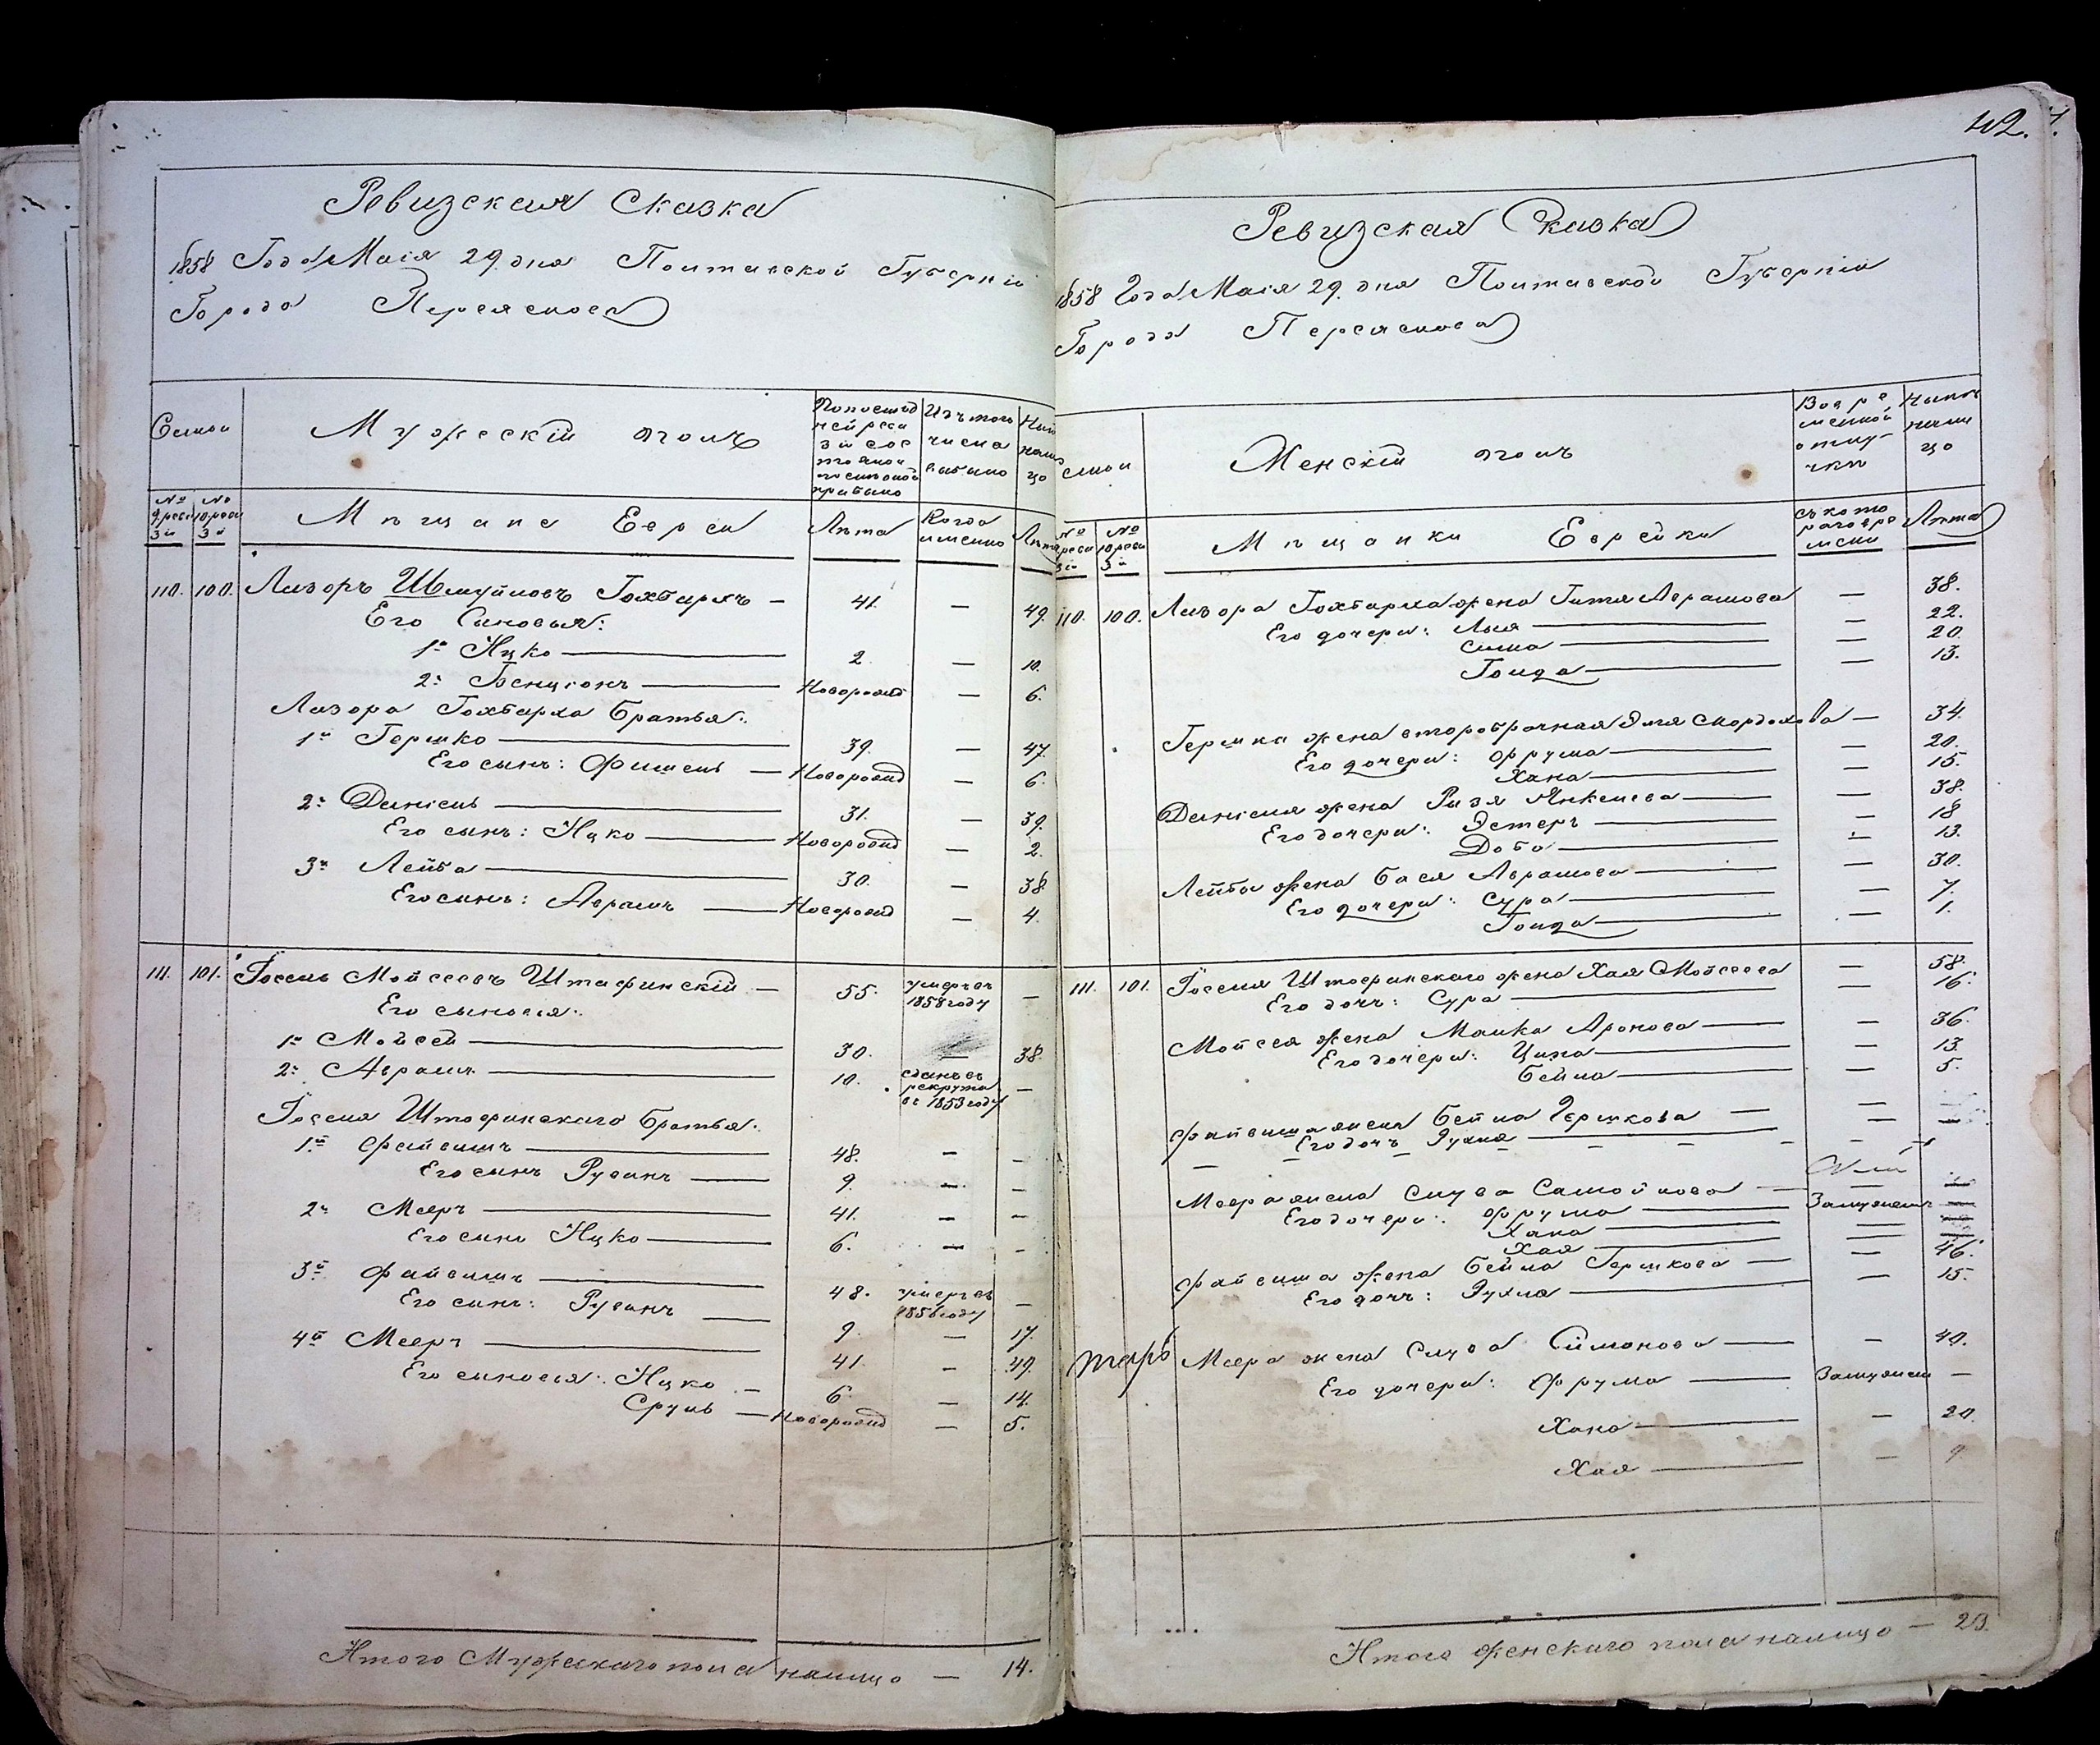 42.
Ревизская Сказка
1858 Года Маія 29. дня Полтавской Губерніи
Города Переяслова
Семьи
Мужескій полъ
По послѣд
ней реви
зіи сос
тояло и
после оной
прибыло
Изъ того
числа
выбыло
Нынѣ
нали
цо
№
9 реви
зіи
№
10 реви
зіи
Мѣщане Евреи
Лѣта
Когда
именно
Лѣта
110. 100. Лизоръ Шмуйловъ Гохбаркъ — 41. — 49.
Его Сыновья:
1й Ицко — 2. — 10.
2й Бенціонъ — Новорожд — 6.
Лизора Гохбарка Братья:
1й Гершко — 39. — 47.
Его сынъ: Фишель — Новорожд — 6.
2й Даніель — 31. — 39.
Его сынъ: Ицко — Новорожд — 2.
3й Лейба — 30. — 38.
Его сынъ: Аврамъ — Новорожд — 4.
111. 101. Іосель Мойсеевъ Штафинскій — 55. умеръ въ 1858 году —
Его сыновья:
1й Мойсей — 30. — 38.
2й Аврамъ — 10. сданъ въ рекруты въ 1853 году —
Іоселя Штофинскаго Братья:
1й Файвишъ — 48. — —
Его сынъ Рувинъ — 9. — —
2й Мееръ — 41. — —
Его сынъ Ицко — 6. — —
3й Файвишъ — 48. умеръ въ 1856 году —
Его сынъ: Рувинъ — 9. — 17.
4й Мееръ — 41. — 49.
Его сыновья: Ицко — 6. — 14.
Сруль — Новорожд — 5.
Итого Мужескаго пола налицо — 14.
Ревизская Сказка
1858 Года Маія 29. дня Полтавской Губерніи
Города Переяслова
Семьи
Женскій полъ
Во вре
менной
отлу-
чки
Нынѣ
нали
цо
№
реви
зіи
№
10 реви
зіи
Мѣщанки Еврейки
съ кото
раго вре
мени
Лѣта
110. 100. Лизора Гохбарка жена Гитя Аврамова — 38.
Его дочери: Лыя — — 22.
Сима — — 20.
Голда — — 13.
Гершка жена второбрачная Эмя Мордохова — 34.
Его дочери: Фрума — — 20.
Хана — — 15.
Даніеля жена Рызя Янкелева — — 38.
Его дочери: Эстеръ — — 18
Доба — — 13.
Лейбы жена Бася Аврамова — — 30.
Его дочери: Сура — — 7.
Голда — — 1.
111. 101. Іоселя Штофинскаго жена Хая Мойсеева — 58.
Его дочь: Сура — — 16.
Мойсея жена Малка Аронова — — 36.
Его дочери: Ципа — — 13.
Бейла — — 5.
Файвиша жена Бейла Гершкова — —
Его дочь Рухля — —
Меера жена Слува Самойлова —
Его дочери: Фрума — Замужемъ
Хана —
Хая —
Файвиша жена Бейла Гершкова — — 46.
Его дочь: Рухля — — 15.
Меера жена Слува Симонова — — 40.
Его дочери: Фрума — Замужем —
Хана — — 20.
Хая — — 9.
Итого женскаго пола налицо — 20.